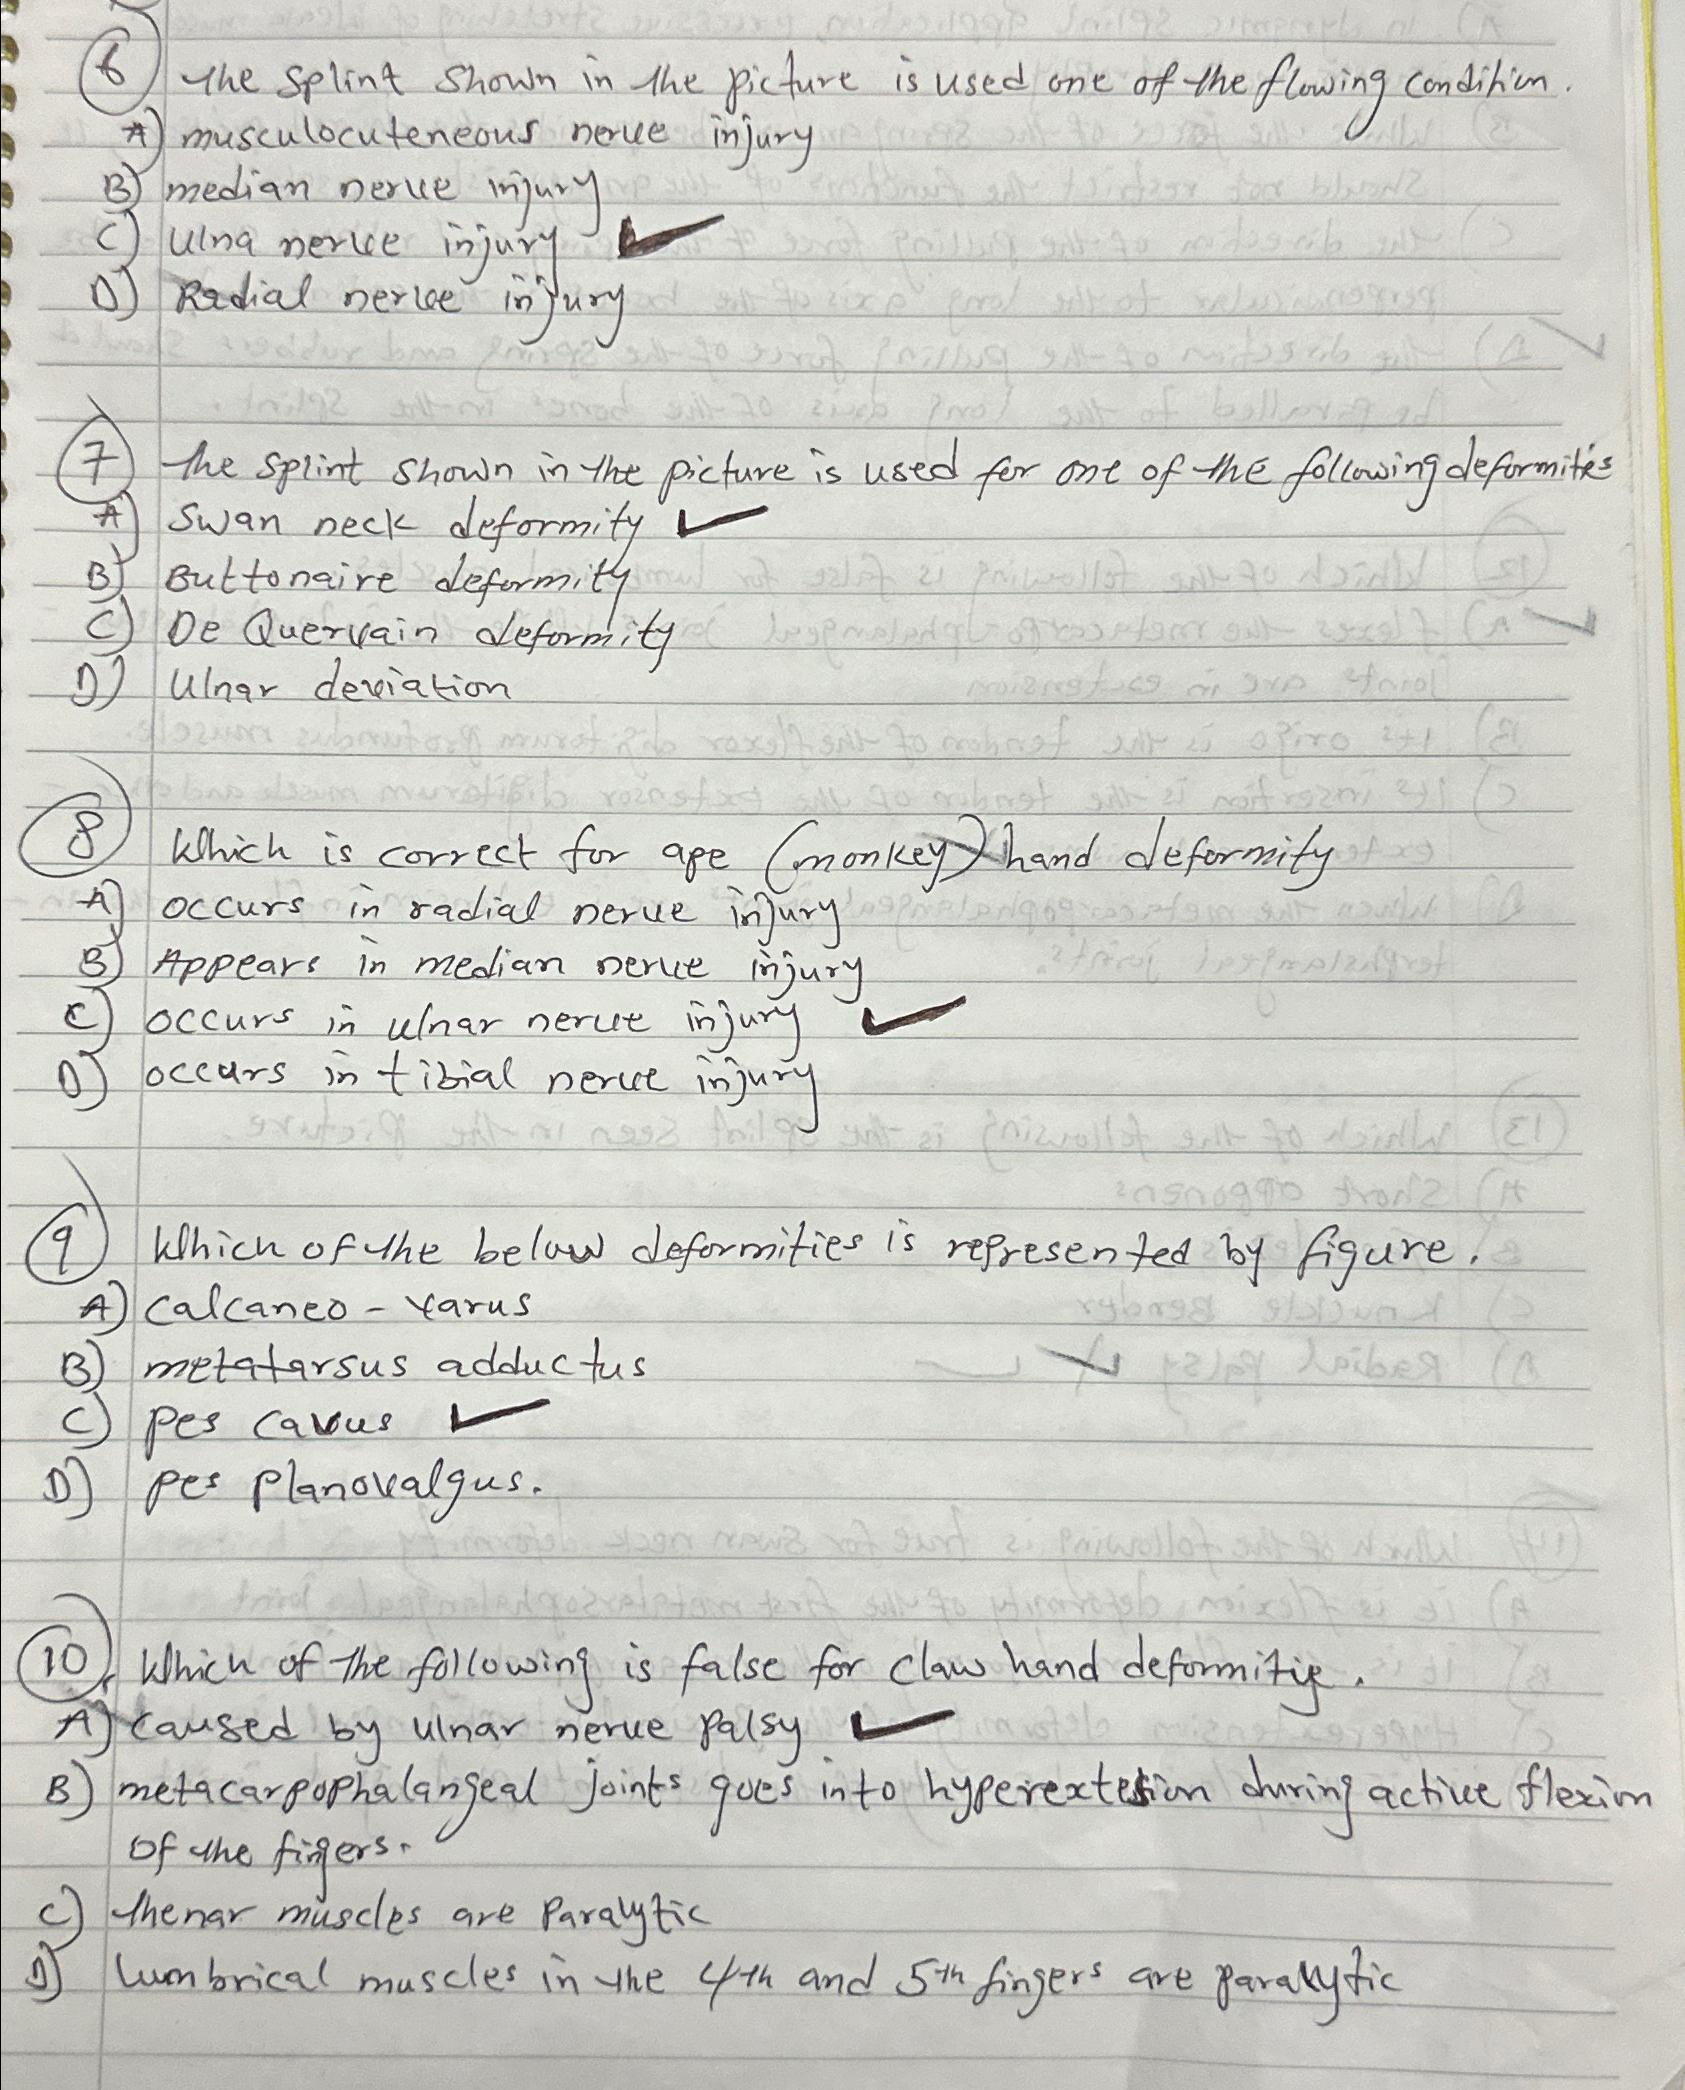 6 The splint shown in the picture is used one of the flowing condition.
A) musculocuteneous nerve injury
B) median nerve injury
C) Ulna nerve injury ✓
D) Radial nerve injury
7 The splint shown in the picture is used for one of the following deformities
A) Swan neck deformity ✓
B) Buttonaire deformity
C) De Quervain deformity
D) Ulnar deviation
8 Which is correct for ape (monkey) hand deformity
A) occurs in radial nerve injury
B) Appears in median nerve injury
C) occurs in ulnar nerve injury ✓
D) occurs in tibial nerve injury
9 Which of the below deformities is represented by figure.
A) Calcaneo - varus
B) metatarsus adductus
C) pes cavus ✓
D) pes planovalgus.
10. Which of the following is false for claw hand deformitie.
A) caused by ulnar nerve palsy ✓
B) metacarpophalangeal joints goes into hyperextesion during active flexion
of the fingers.
C) thenar muscles are paralytic
D) lumbrical muscles in the 4th and 5th fingers are paralytic